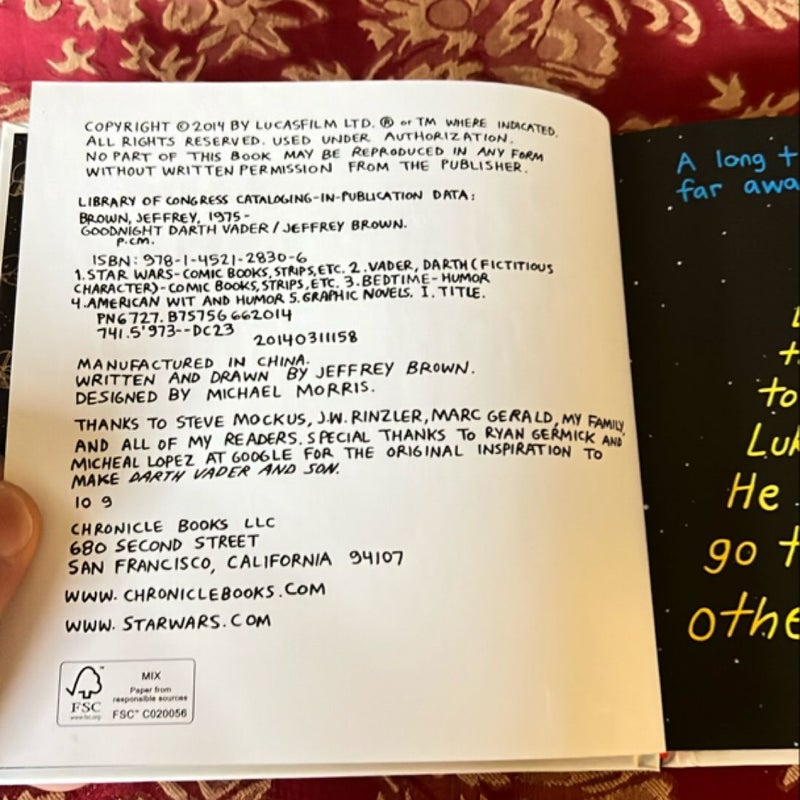 COPYRIGHT © 2014 BY LUCASFILM LTD. ® or TM WHERE INDICATED.
ALL RIGHTS RESERVED. USED UNDER AUTHORIZATION.
NO PART OF THIS BOOK MAY BE REPRODUCED IN ANY FORM
WITHOUT WRITTEN PERMISSION FROM THE PUBLISHER.
LIBRARY OF CONGRESS CATALOGING-IN-PUBLICATION DATA:
BROWN, JEFFREY, 1975-
GOODNIGHT DARTH VADER / JEFFREY BROWN.
P.CM.
ISBN: 978-1-4521-2830-6
1. STAR WARS-COMIC BOOKS, STRIPS, ETC. 2. VADER, DARTH (FICTITIOUS
CHARACTER)-COMIC BOOKS, STRIPS, ETC. 3. BEDTIME-HUMOR
4. AMERICAN WIT AND HUMOR 5. GRAPHIC NOVELS. I. TITLE.
PN6727. B75756 662014
741.5'973--DC23
20140311158
MANUFACTURED IN CHINA.
WRITTEN AND DRAWN BY JEFFREY BROWN.
DESIGNED BY MICHAEL MORRIS.
THANKS TO STEVE MOCKUS, J.W. RINZLER, MARC GERALD, MY FAMILY,
AND ALL OF MY READERS. SPECIAL THANKS TO RYAN GERMICK AND
MICHEAL LOPEZ AT GOOGLE FOR THE ORIGINAL INSPIRATION TO
MAKE DARTH VADER AND SON.
10 9
CHRONICLE BOOKS LLC
680 SECOND STREET
SAN FRANCISCO, CALIFORNIA 94107
WWW. CHRONICLEBOOKS.COM
WWW. STARWARS.COM
FSC
www.fsc.org
MIX
Paper from
responsible sources
FSC™ C020056
A long t
far awa
to
Luk
He
go t
othe